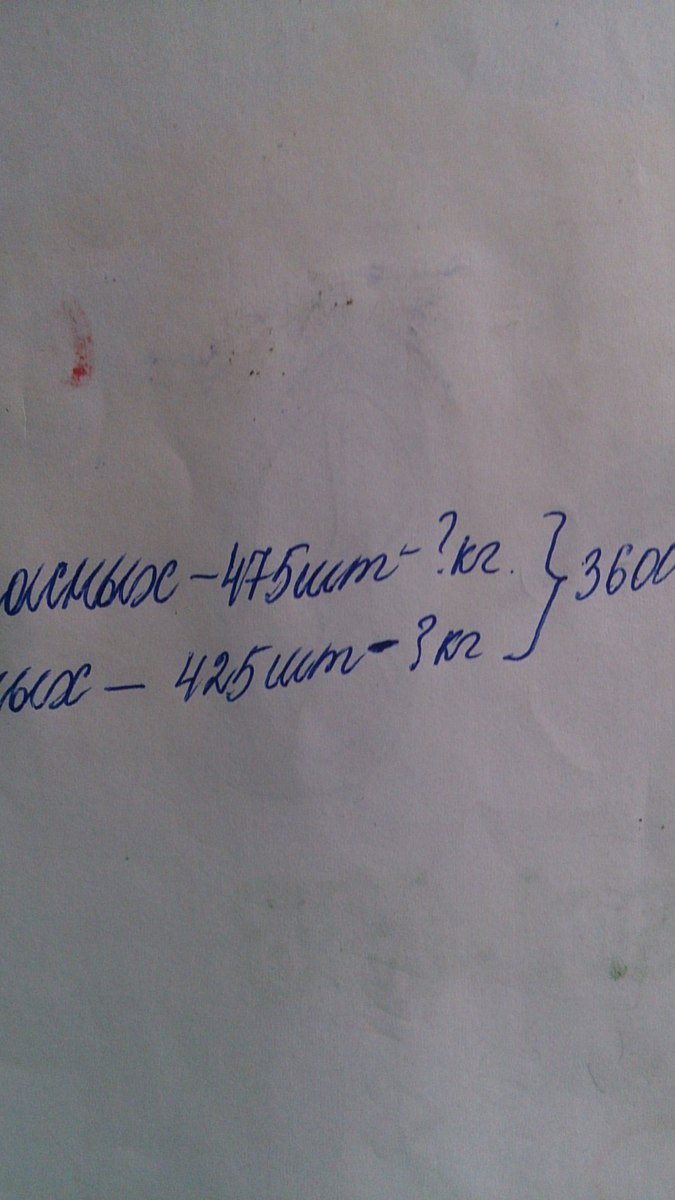 асных – 475 шт – ? кг. } 3600
ых – 425 шт – ? кг